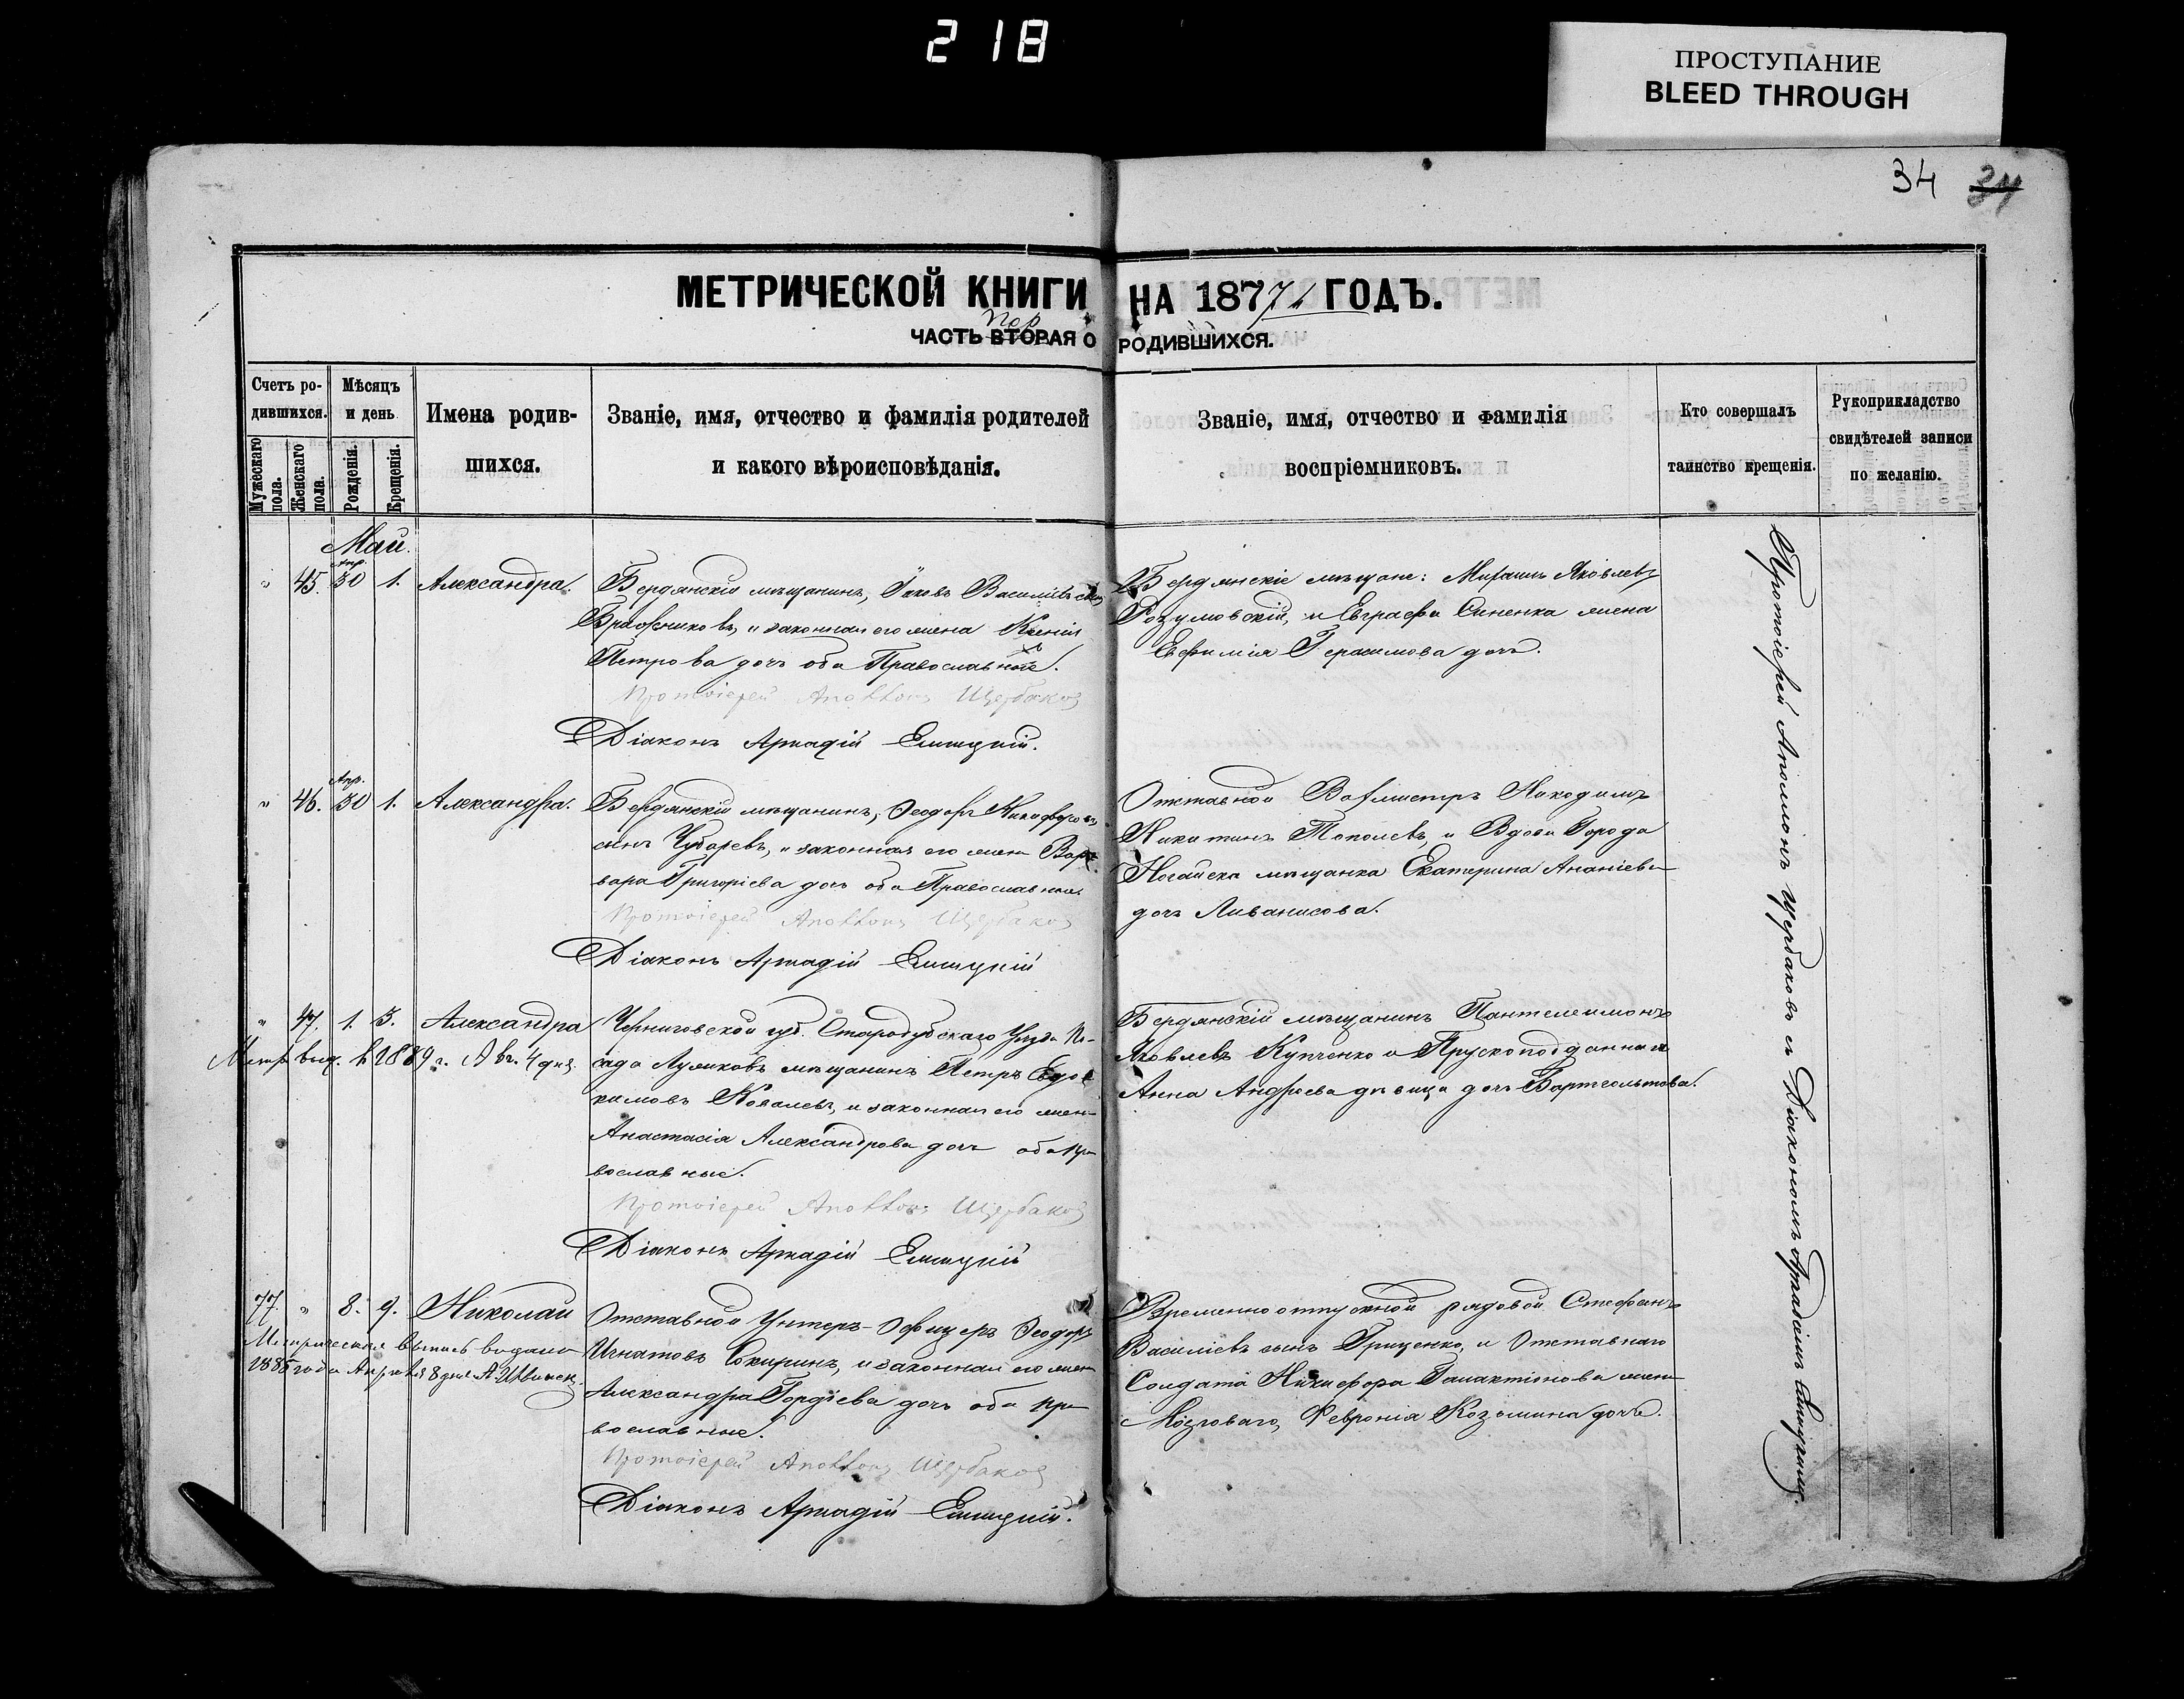 218
ПРОСТУПАНИЕ
BLEED THROUGH
34 34
МЕТРИЧЕСКОЙ КНИГИ НА 187 ГОДЪ.
Пер
ЧАСТЬ ВТОРАЯ О РОДИВШИХСЯ.
Счетъ ро-
дившихся.
Мужескаго пола.
Женскаго пола.
Мѣсяцъ
и день
Рожденія.
Крещенія.
Имена родив-
шихся.
Званіе, имя, отчество и фамилія родителей
и какого вѣроисповѣданія.
Званіе, имя, отчество и фамилія
воспріемниковъ.
Кто совершалъ
таинство крещенія.
Рукоприкладство
свидѣтелей записи
по желанію.
Май.
Апр.
" 45. 30 1. Александра.
Бердянскій мѣщанинъ, Іаковъ Василіевъ сынъ
и законная его жена Ксенія
Петрова дочь оба Православные.
Протоіерей Аполлонъ Щербаковъ
Діаконъ Аркадій
Бердянскіе мѣщане: Яковлевъ
Розумовскій, и Евграфа Синенка жена
Евфимія Герасимова дочь.
Апр.
" 46. 30 1. Александра.
Бердянскій мѣщанинъ, Ѳеодоръ Никифоровъ
сынъ Чубаревъ, и законная его жена Вар-
вара Григоріева дочь оба Православные
Протоіерей Аполлонъ Щербаковъ
Діаконъ Аркадій
Отставной Вахмистръ Никодимъ
Никитинъ Тополевъ, и Вдова Города
Ногайска мѣщанка Екатерина Ананіева
дочь Ливанисова.
" 47. 1. 3. Александра
Метр. выд. въ 1889 г. Авг. 4 дня.
Черниговской губ. Стародубскаго Уѣзда По-
сада Лужковъ мѣщанинъ Петръ Евдо-
кимовъ Ковалевъ, и законная его жена
Анастасія Александрова дочь оба пра-
вославные.
Протоіерей Аполлонъ Щербаковъ
Діаконъ Аркадій
Бердянскій мѣщанинъ Пантелеимонъ
Яковлевъ Купченко и Прускоподданная
Анна Андреева дѣвица дочь
77. " 8. 9. Николай
Метрическая выпись выдана
188 года Апрѣля 8 дня
Отставной Унтеръ-Офицеръ Ѳеодоръ
Игнатовъ Сокиринъ, и законная его жена
Александра Гордіева дочь оба пра-
вославные.
Протоіерей Аполлонъ Щербаковъ
Діаконъ Аркадій
Временно отпускной рядовой Стефанъ
Василіевъ сынъ Гриценко, и Отставнаго
Солдата Никифора Галактіонова жена
Мозговаго, Февронія Козьмина дочь.
Протоіерей Аполлонъ Щербаковъ съ Діакономъ Аркадіемъ